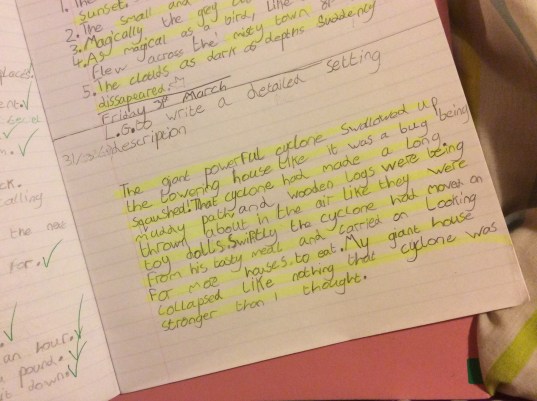 1. The
sunset.
2. The small and
3. Magically the grey
4. As magical as a bird, like
flew across the misty town
5. The clouds as dark as depths suddenly
dissapeared.
Friday March
L.O. to write a detailed setting
description
The giant powerful cyclone swallowed up
the towering house like it was a bug being
squashed. That cyclone had made a long
muddy path, and wooden logs were being
thrown about in the air like they were
toy dolls. Swiftly the cyclone had moved on
from his tasty meal and carried on looking
for more houses to eat. My giant house
collapsed like nothing that cyclone was
stronger than I thought.
calling
the
for.
an hour.
a pound.
it down.